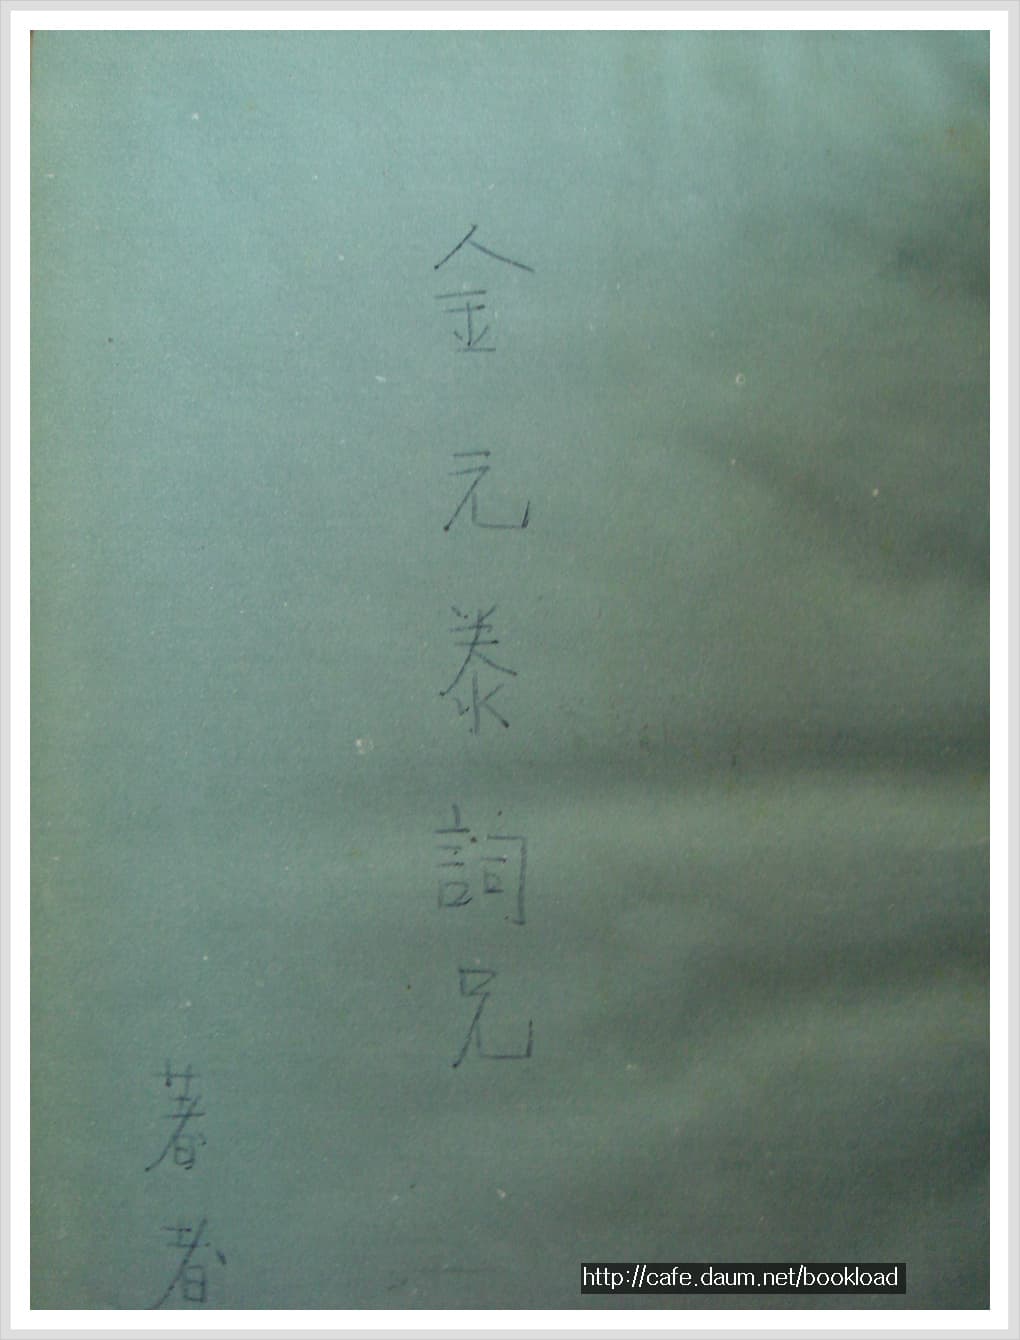 金元泰詞兄
著者
http://cafe.daum.net/bookload